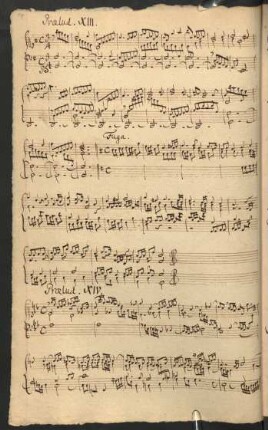 Prælud. XIII.
Fuga.
Prælud. XIV.